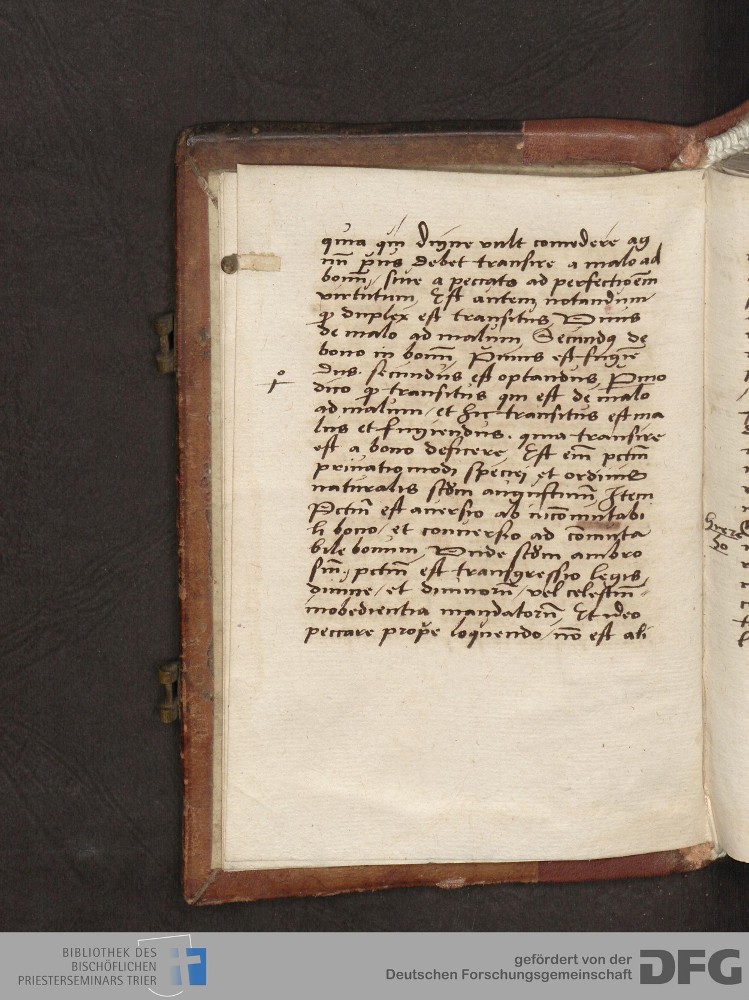 quia qui digne vult comedere ag
nū prius debet transire a malo ad
bonū, siue a peccato ad perfectioēm
virtutum, Est autem notandum
ꝙ duplex est transitus, Vnus
de malo ad malum, Secundꝰ de
bono in bonū, Primus est fugiē
dus. secundus est optandus, Primo
dico ꝙ transitus qui est de malo
ad malum, et hic transitus est ma
lus et fugiendus. quia transire
est a bono deficere, Est eīm pctm̄
priuatio modi speciei et ordinis
naturalis scdm̄ augustinū, Item
Pctm̄ est auersio ab incōmutabi
li bono, et conuersio ad cōmuta
bile bonum, Vnde scdm̄ ambro
siū, pctm̄ est transgressio legis
diuine, et diuinorū, vel celestiū
inobedientia mandatorū, Et ideo
peccare propͥe loquendo, nō est ali
BIBLIOTHEK DES
BISCHÖFLICHEN
PRIESTERSEMINARS TRIER
gefördert von der
Deutschen Forschungsgemeinschaft
DFG